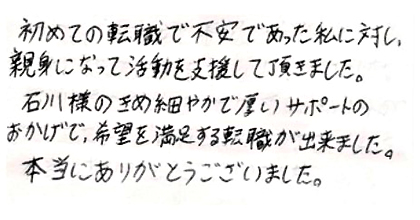 初めての転職で不安であった私に対し、
親身になって活動を支援して頂きました。
石川様のきめ細やかで厚いサポートの
おかげで、希望を満足する転職が出来ました。
本当にありがとうございました。